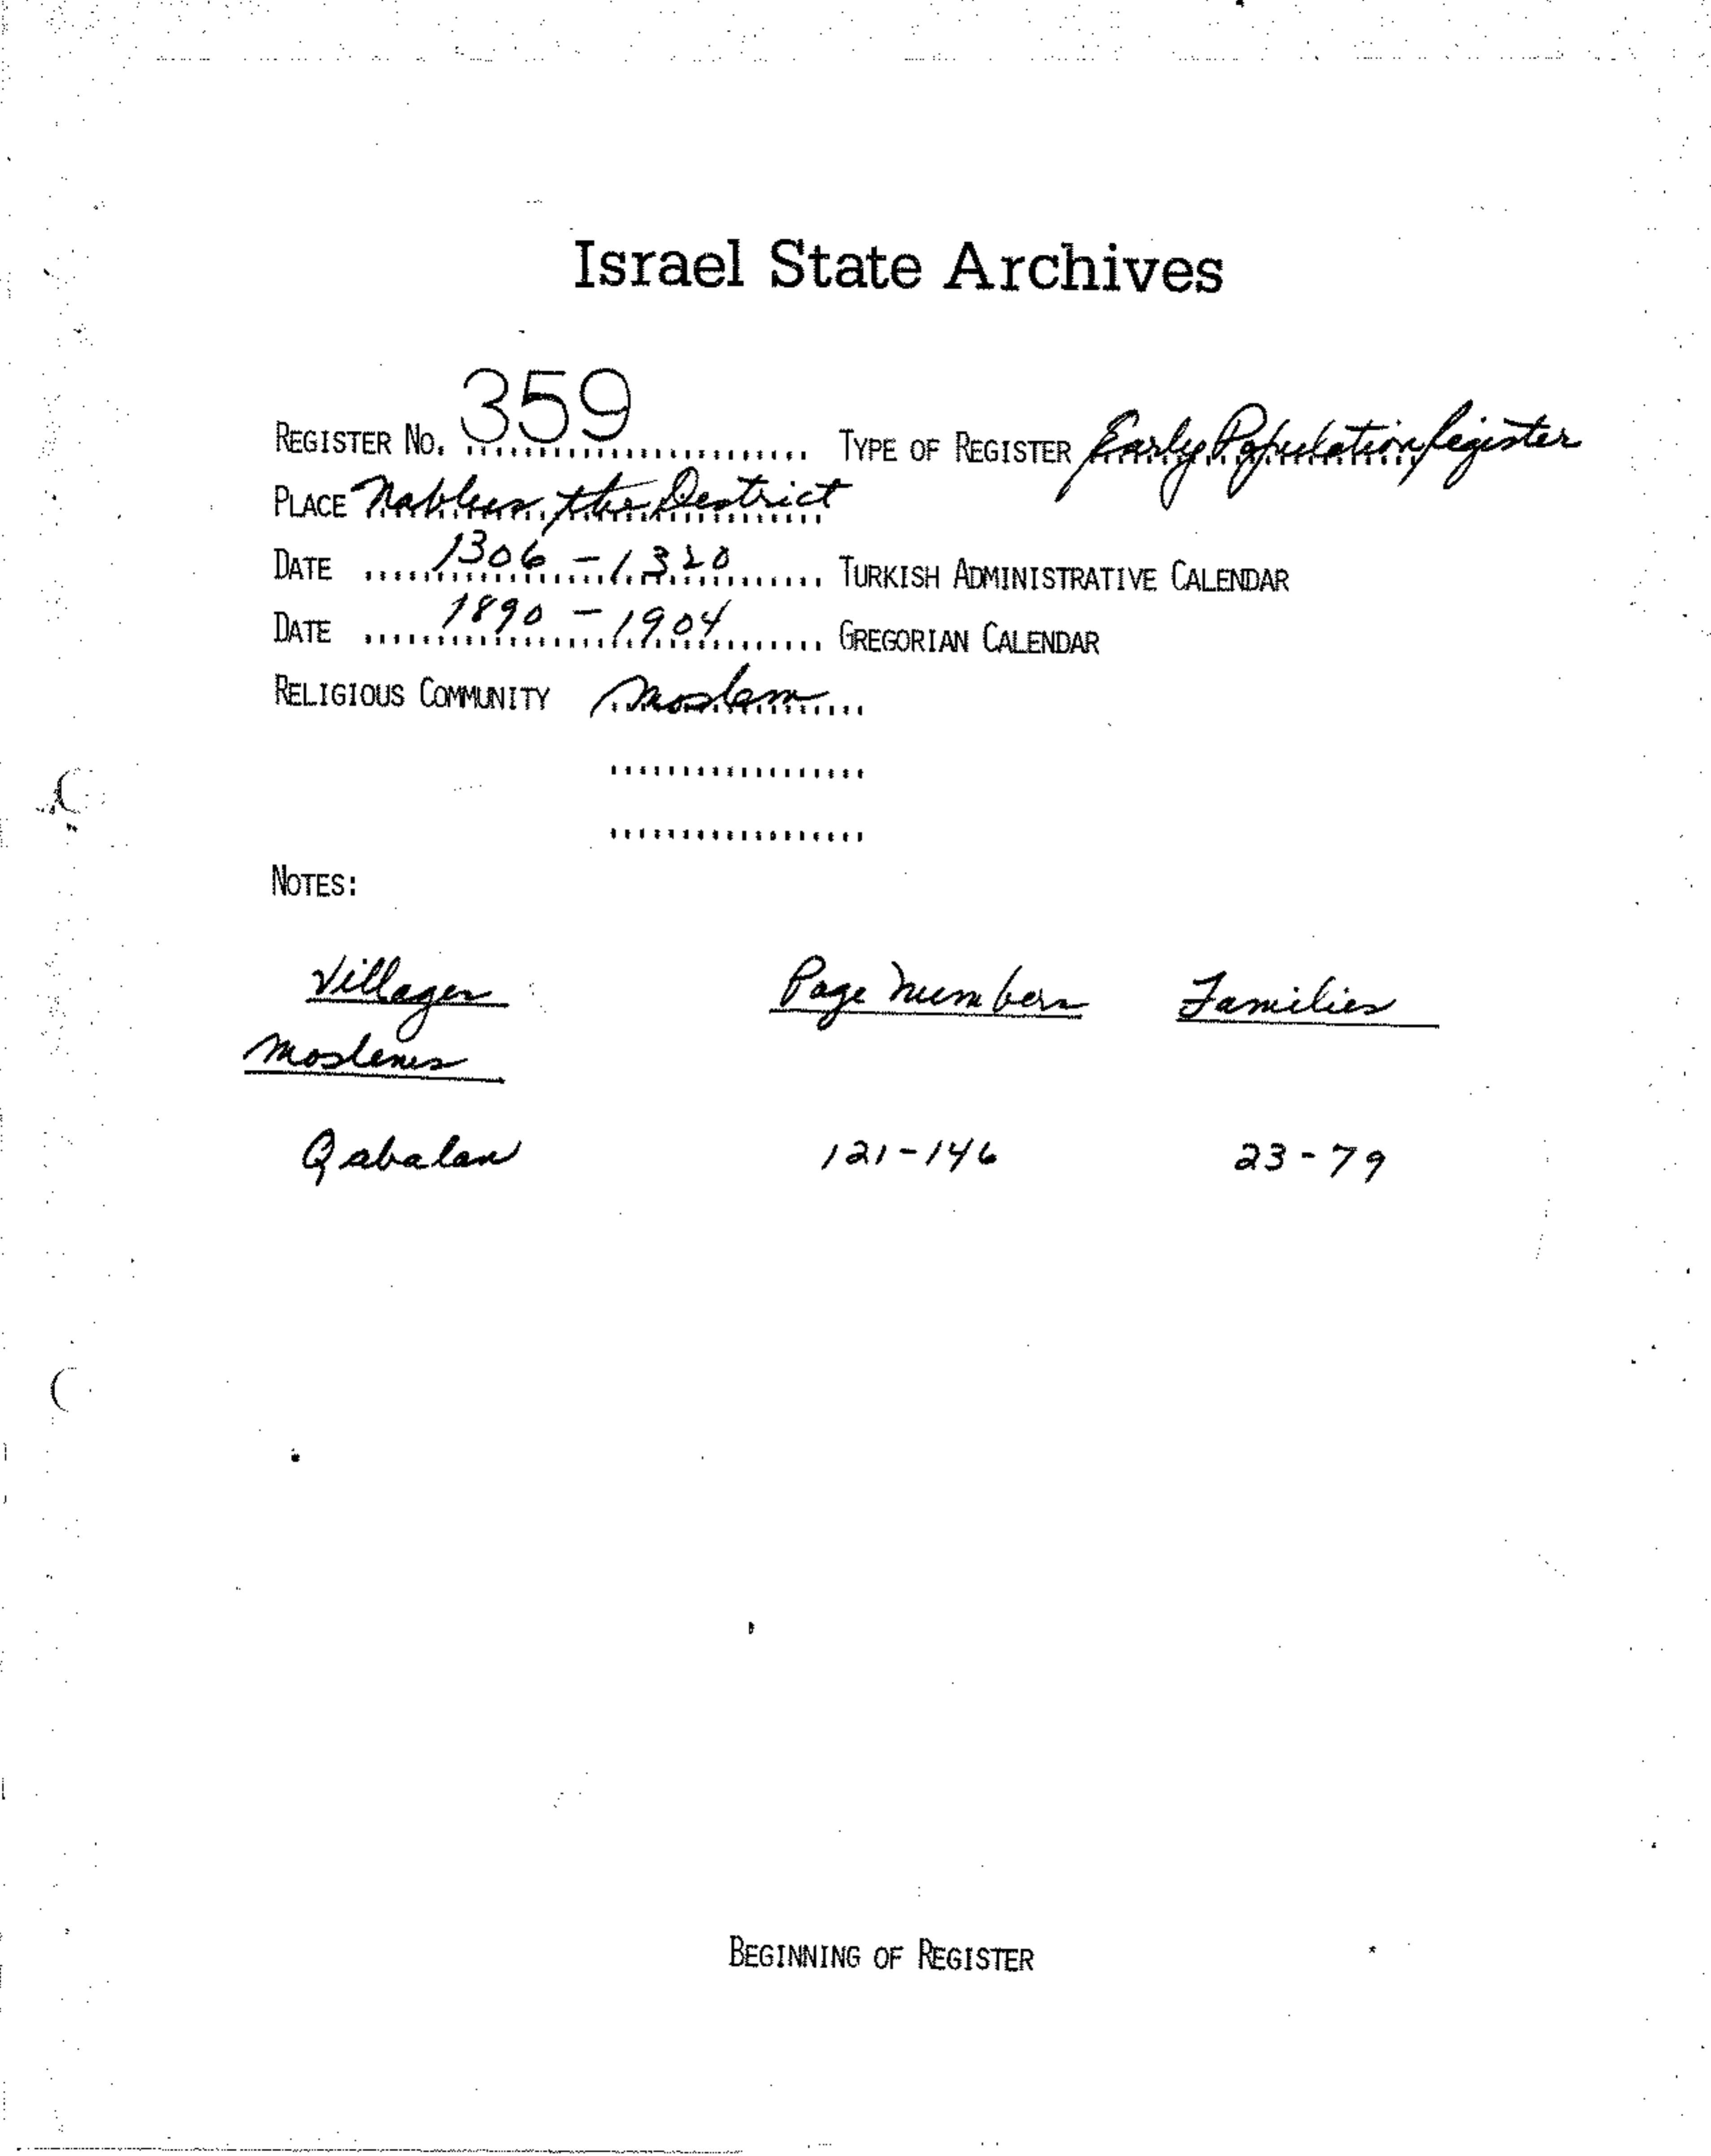 Israel State Archives
REGISTER NO. 359 TYPE OF REGISTER Early Population Register
PLACE Nablus, the District
DATE 1306 - 1320 TURKISH ADMINISTRATIVE CALENDAR
DATE 1890 - 1904 GREGORIAN CALENDAR
RELIGIOUS COMMUNITY Moslem
NOTES:
Villages Page Numbers Families
Moslems
Qabalan 121-146 23-79
BEGINNING OF REGISTER